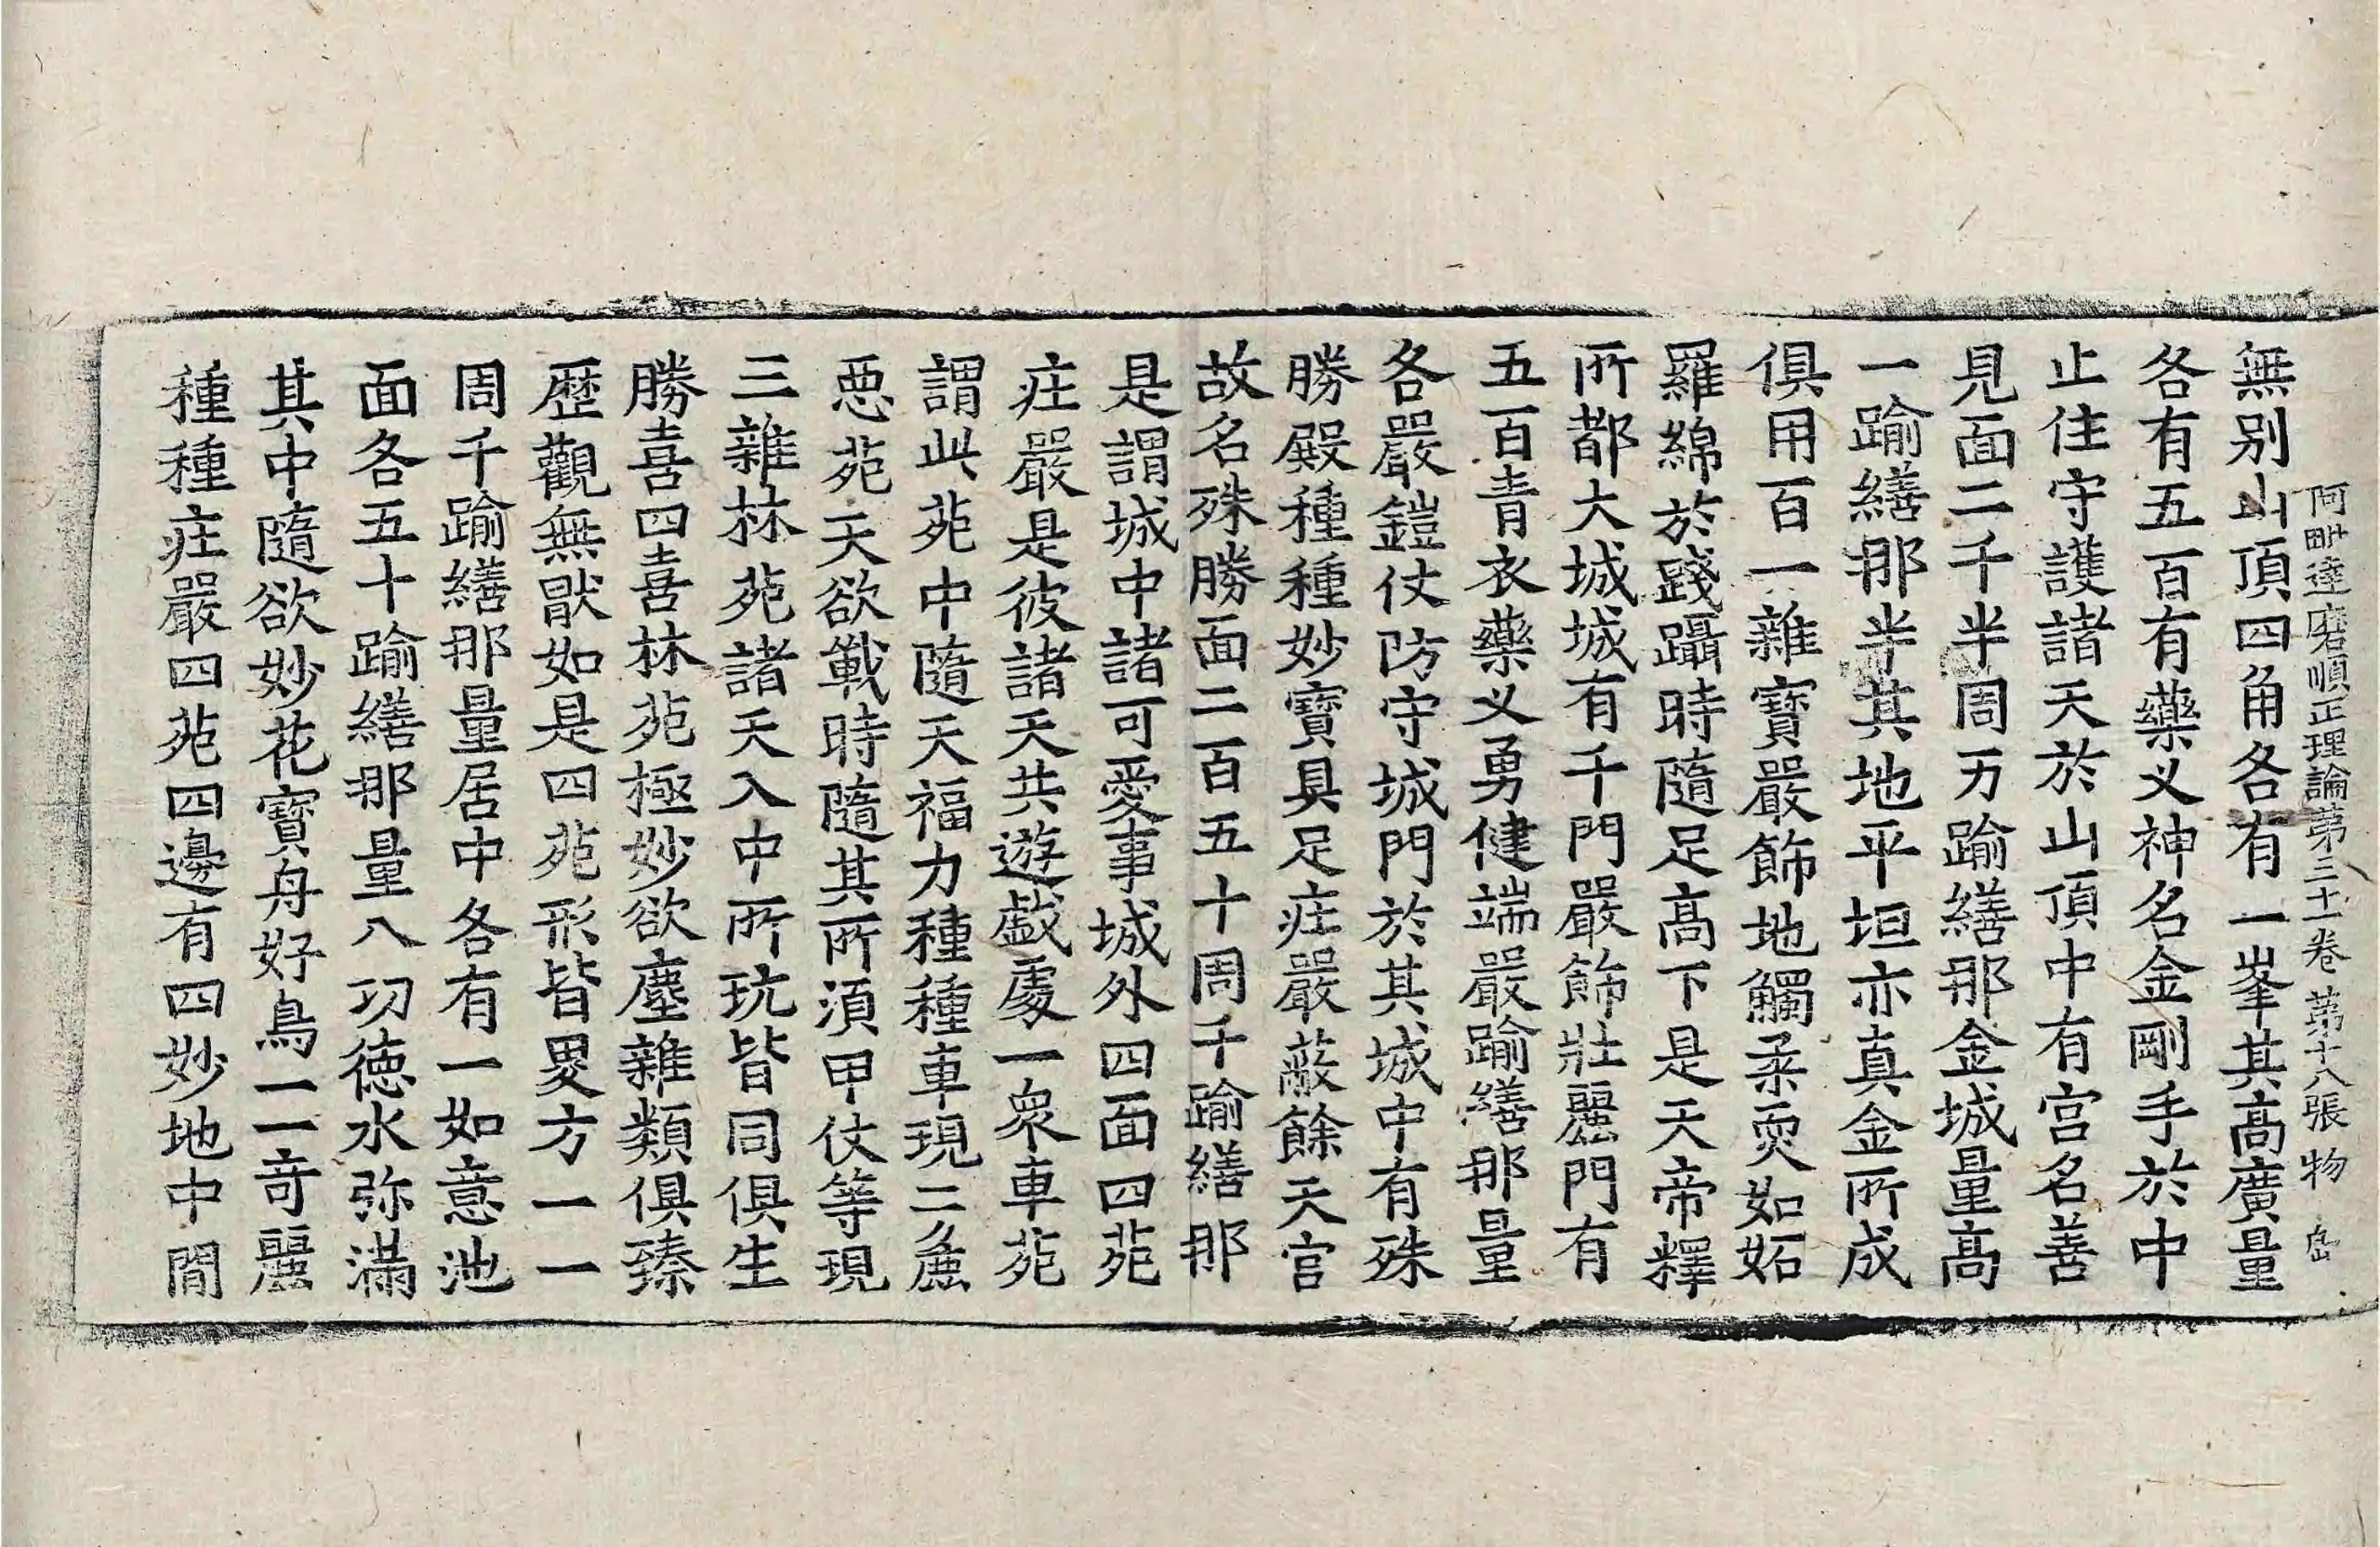 阿毗達磨順正理論第三十一卷 第十八張 物
無別山頂四角各有一峯其高廣量
各有五百有藥叉神名金剛手於中
止住守護諸天於山頂中有宮名善
見面二千半周万踰繕那金城量高
一踰繕那半其地平坦亦真金所成
俱用百一雜寶嚴飾地觸柔耎如妬
羅綿於踐躡時隨足高下是天帝釋
所都大城城有千門嚴飾壯麗門有
五百青衣藥叉勇健端嚴踰繕那量
各嚴鎧仗防守城門於其城中有殊
勝殿種種妙寶具足庄嚴蔽餘天宮
故名殊勝面二百五十周千踰繕那
是謂城中諸可愛事城外四面四苑
庄嚴是彼諸天共遊戲處一衆車苑
謂此苑中隨天福力種種車現二麁
惡苑天欲戰時隨其所須甲仗等現
三雜林苑諸天入中所玩皆同俱生
勝喜四喜林苑極妙欲塵雜類俱臻
歷觀無猒如是四苑形皆畟方一一
周千踰繕那量居中各有一如意池
面各五十踰繕那量八功德水弥滿
其中隨欲妙花寶舟好鳥一一奇麗
種種庄嚴四苑四邊有四妙地中間